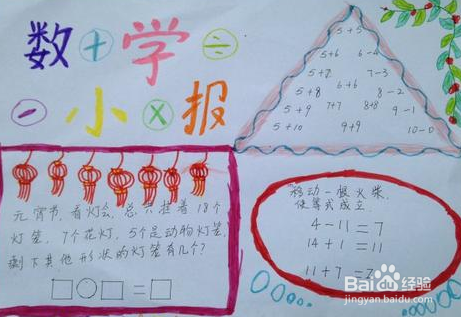 数 + 学 ÷
- 小 × 报
5+5
5+6 6-4
5+7 7-3
5+8 6+6 8-2
5+9 7+7 8+8 9-1
5+10 9+9 10-0
元宵节,看灯会,总共挂着18个
灯笼,7个花灯,5个是动物灯笼,
剩下其他形状的灯笼有几个?
□○□=□
移动一根火柴,
使等式成立.
4-11=7
14+1=11
11+7=2
Baidu经验
jingyan.baidu.com